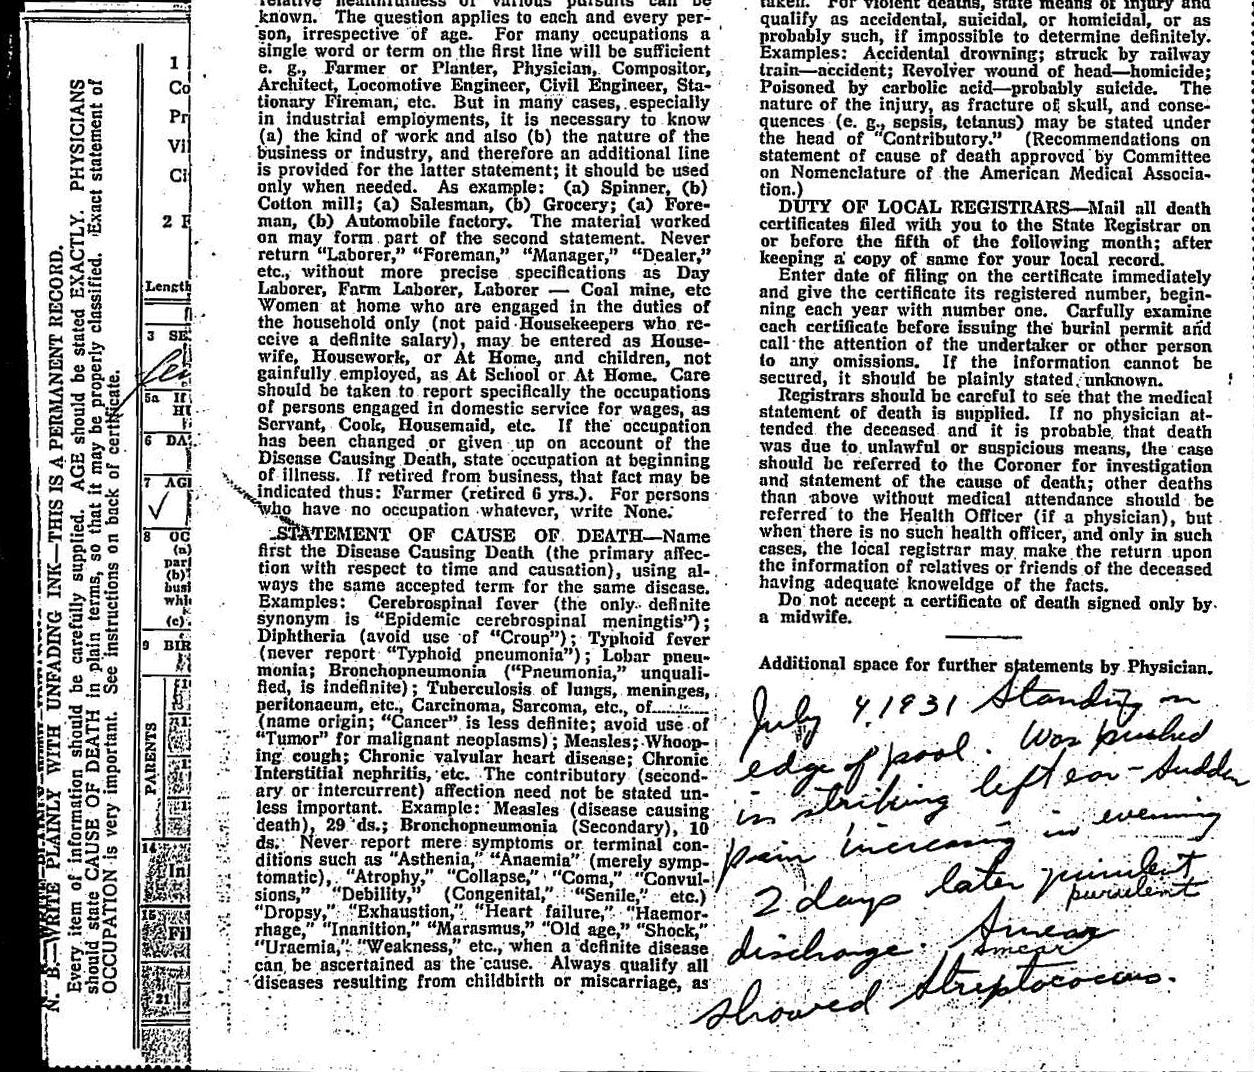 N. B.—WRITE PLAINLY WITH UNFADING INK—THIS IS A PERMANENT RECORD.
Every item of information should be carefully supplied. AGE should be stated EXACTLY. PHYSICIANS
should state CAUSE OF DEATH in plain terms, so that it may be properly classified. Exact statement of
OCCUPATION is very important. See instructions on back of certificate.
1
Co
Pr
Vil
Ci
2 F
Length
3 SE
5a If
6 DA
7 AG
8 OC
(a)
par
(b)
busi
whi
(c)
9 BIR
PARENTS
14
In
15
Fil
21
known. The question applies to each and every per-
son, irrespective of age. For many occupations a
single word or term on the first line will be sufficient
e. g., Farmer or Planter, Physician, Compositor,
Architect, Locomotive Engineer, Civil Engineer, Sta-
tionary Fireman, etc. But in many cases, especially
in industrial employments, it is necessary to know
(a) the kind of work and also (b) the nature of the
business or industry, and therefore an additional line
is provided for the latter statement; it should be used
only when needed. As example: (a) Spinner, (b)
Cotton mill; (a) Salesman, (b) Grocery; (a) Fore-
man, (b) Automobile factory. The material worked
on may form part of the second statement. Never
return "Laborer," "Foreman," "Manager," "Dealer,"
etc., without more precise specifications as Day
Laborer, Farm Laborer, Laborer — Coal mine, etc
Women at home who are engaged in the duties of
the household only (not paid Housekeepers who re-
ceive a definite salary), may be entered as House-
wife, Housework, or At Home, and children, not
gainfully employed, as At School or At Home. Care
should be taken to report specifically the occupations
of persons engaged in domestic service for wages, as
Servant, Cook, Housemaid, etc. If the occupation
has been changed or given up on account of the
Disease Causing Death, state occupation at beginning
of illness. If retired from business, that fact may be
indicated thus: Farmer (retired 6 yrs.). For persons
who have no occupation whatever, write None.
STATEMENT OF CAUSE OF DEATH—Name
first the Disease Causing Death (the primary affec-
tion with respect to time and causation), using al-
ways the same accepted term for the same disease.
Examples: Cerebrospinal fever (the only definite
synonym is "Epidemic cerebrospinal meningtis");
Diphtheria (avoid use of "Croup"); Typhoid fever
(never report "Typhoid pneumonia"); Lobar pneu-
monia; Bronchopneumonia ("Pneumonia," unquali-
fied, is indefinite); Tuberculosis of lungs, meninges,
peritonaeum, etc., Carcinoma, Sarcoma, etc., of........
(name origin; "Cancer" is less definite; avoid use of
"Tumor" for malignant neoplasms); Measles; Whoop-
ing cough; Chronic valvular heart disease; Chronic
Interstitial nephritis, etc. The contributory (second-
ary or intercurrent) affection need not be stated un-
less important. Example: Measles (disease causing
death), 29 ds.; Bronchopneumonia (Secondary), 10
ds. Never report mere symptoms or terminal con-
ditions such as "Asthenia," "Anaemia" (merely symp-
tomatic), "Atrophy," "Collapse," "Coma," "Convul-
sions," "Debility," (Congenital," "Senile," etc.)
"Dropsy," "Exhaustion," "Heart failure," "Haemor-
rhage," "Inanition," "Marasmus," "Old age," "Shock,"
"Uraemia," "Weakness," etc., when a definite disease
can be ascertained as the cause. Always qualify all
diseases resulting from childbirth or miscarriage, as
taken. For violent deaths, state means of injury and
qualify as accidental, suicidal, or homicidal, or as
probably such, if impossible to determine definitely.
Examples: Accidental drowning; struck by railway
train—accident; Revolver wound of head—homicide;
Poisoned by carbolic acid—probably suicide. The
nature of the injury, as fracture of skull, and conse-
quences (e. g., sepsis, tetanus) may be stated under
the head of "Contributory." (Recommendations on
statement of cause of death approved by Committee
on Nomenclature of the American Medical Associa-
tion.)
DUTY OF LOCAL REGISTRARS—Mail all death
certificates filed with you to the State Registrar on
or before the fifth of the following month; after
keeping a copy of same for your local record.
Enter date of filing on the certificate immediately
and give the certificate its registered number, begin-
ning each year with number one. Carfully examine
each certificate before issuing the burial permit and
call the attention of the undertaker or other person
to any omissions. If the information cannot be
secured, it should be plainly stated unknown.
Registrars should be careful to see that the medical
statement of death is supplied. If no physician at-
tended the deceased and it is probable that death
was due to unlawful or suspicious means, the case
should be referred to the Coroner for investigation
and statement of the cause of death; other deaths
than above without medical attendance should be
referred to the Health Officer (if a physician), but
when there is no such health officer, and only in such
cases, the local registrar may make the return upon
the information of relatives or friends of the deceased
having adequate knoweldge of the facts.
Do not accept a certificate of death signed only by
a midwife.
Additional space for further statements by Physician.
July 4, 1931 Standing on
edge of pool. Was pushed
in striking left ear - Sudden
pain increasing in evening
2 days later purulent
purulent
discharge. Smear
smear
showed Streptococcus.